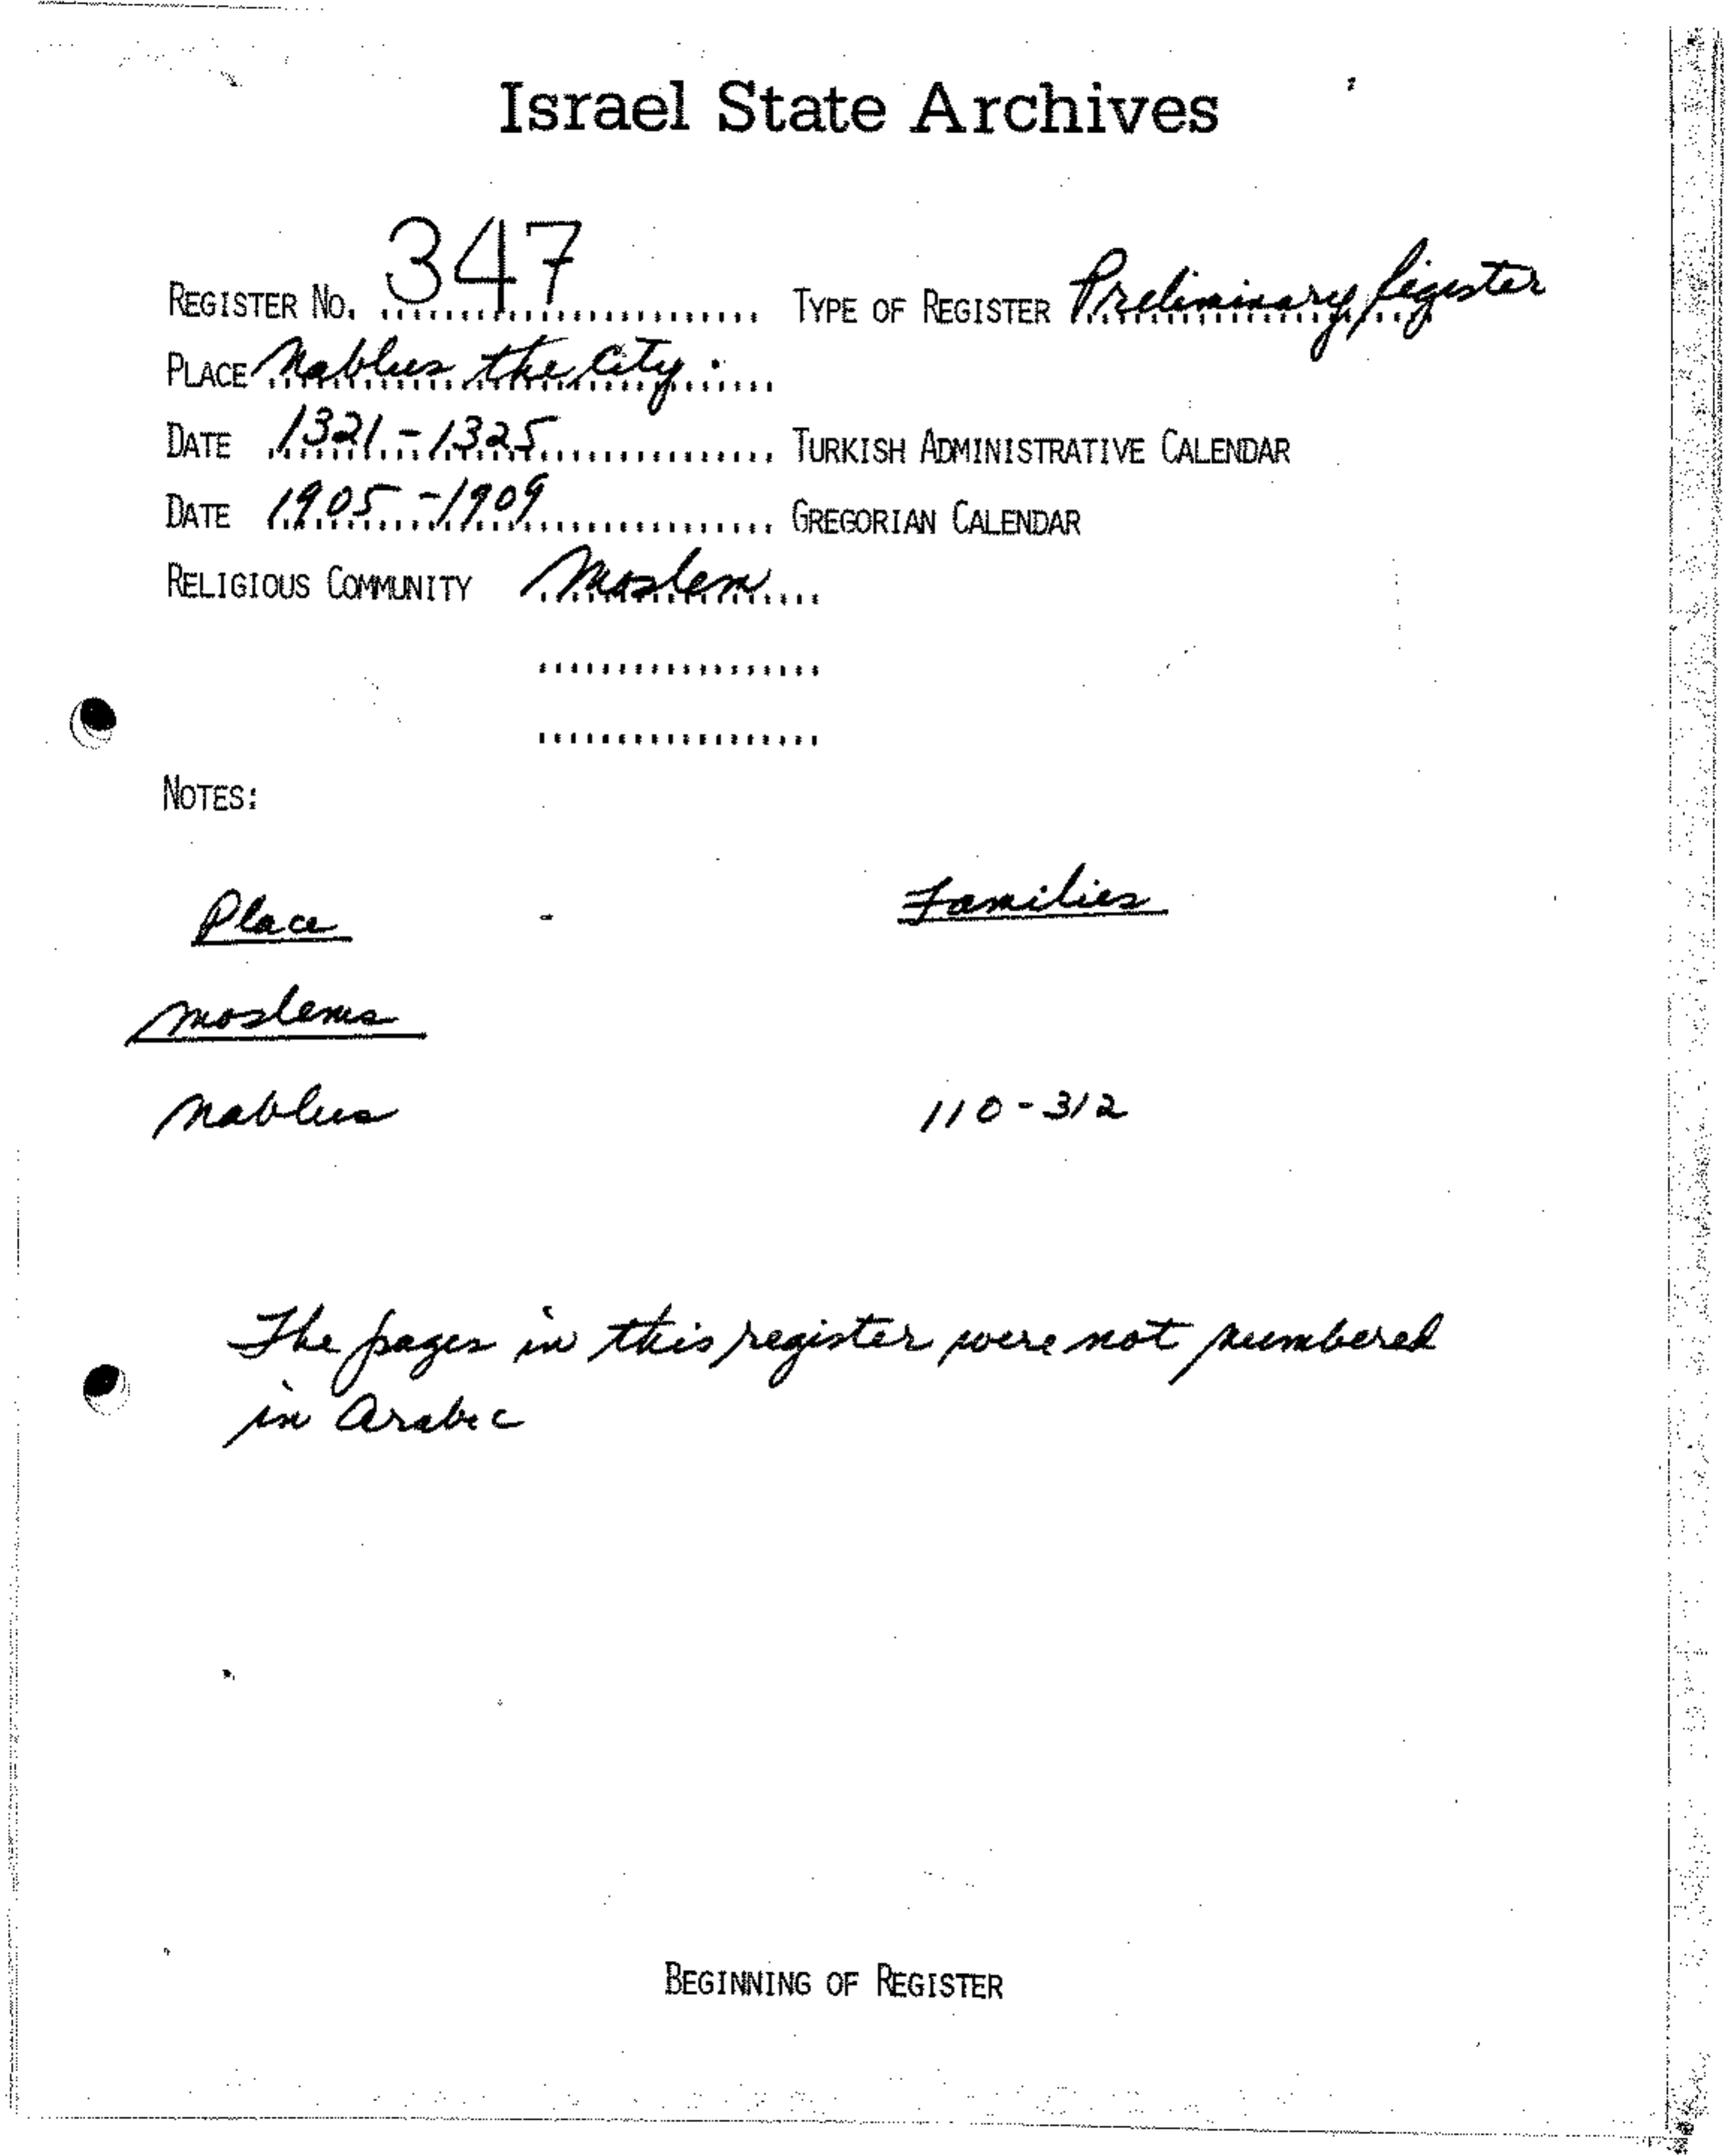 Israel State Archives
REGISTER NO. 347 TYPE OF REGISTER Preliminary Register
PLACE Nablus the City
DATE 1321-1325 TURKISH ADMINISTRATIVE CALENDAR
DATE 1905-1909 GREGORIAN CALENDAR
RELIGIOUS COMMUNITY Moslem
NOTES:
Place - Families
Moslems
Nablus 110-312
The pages in this register were not numbered
in Arabic
BEGINNING OF REGISTER